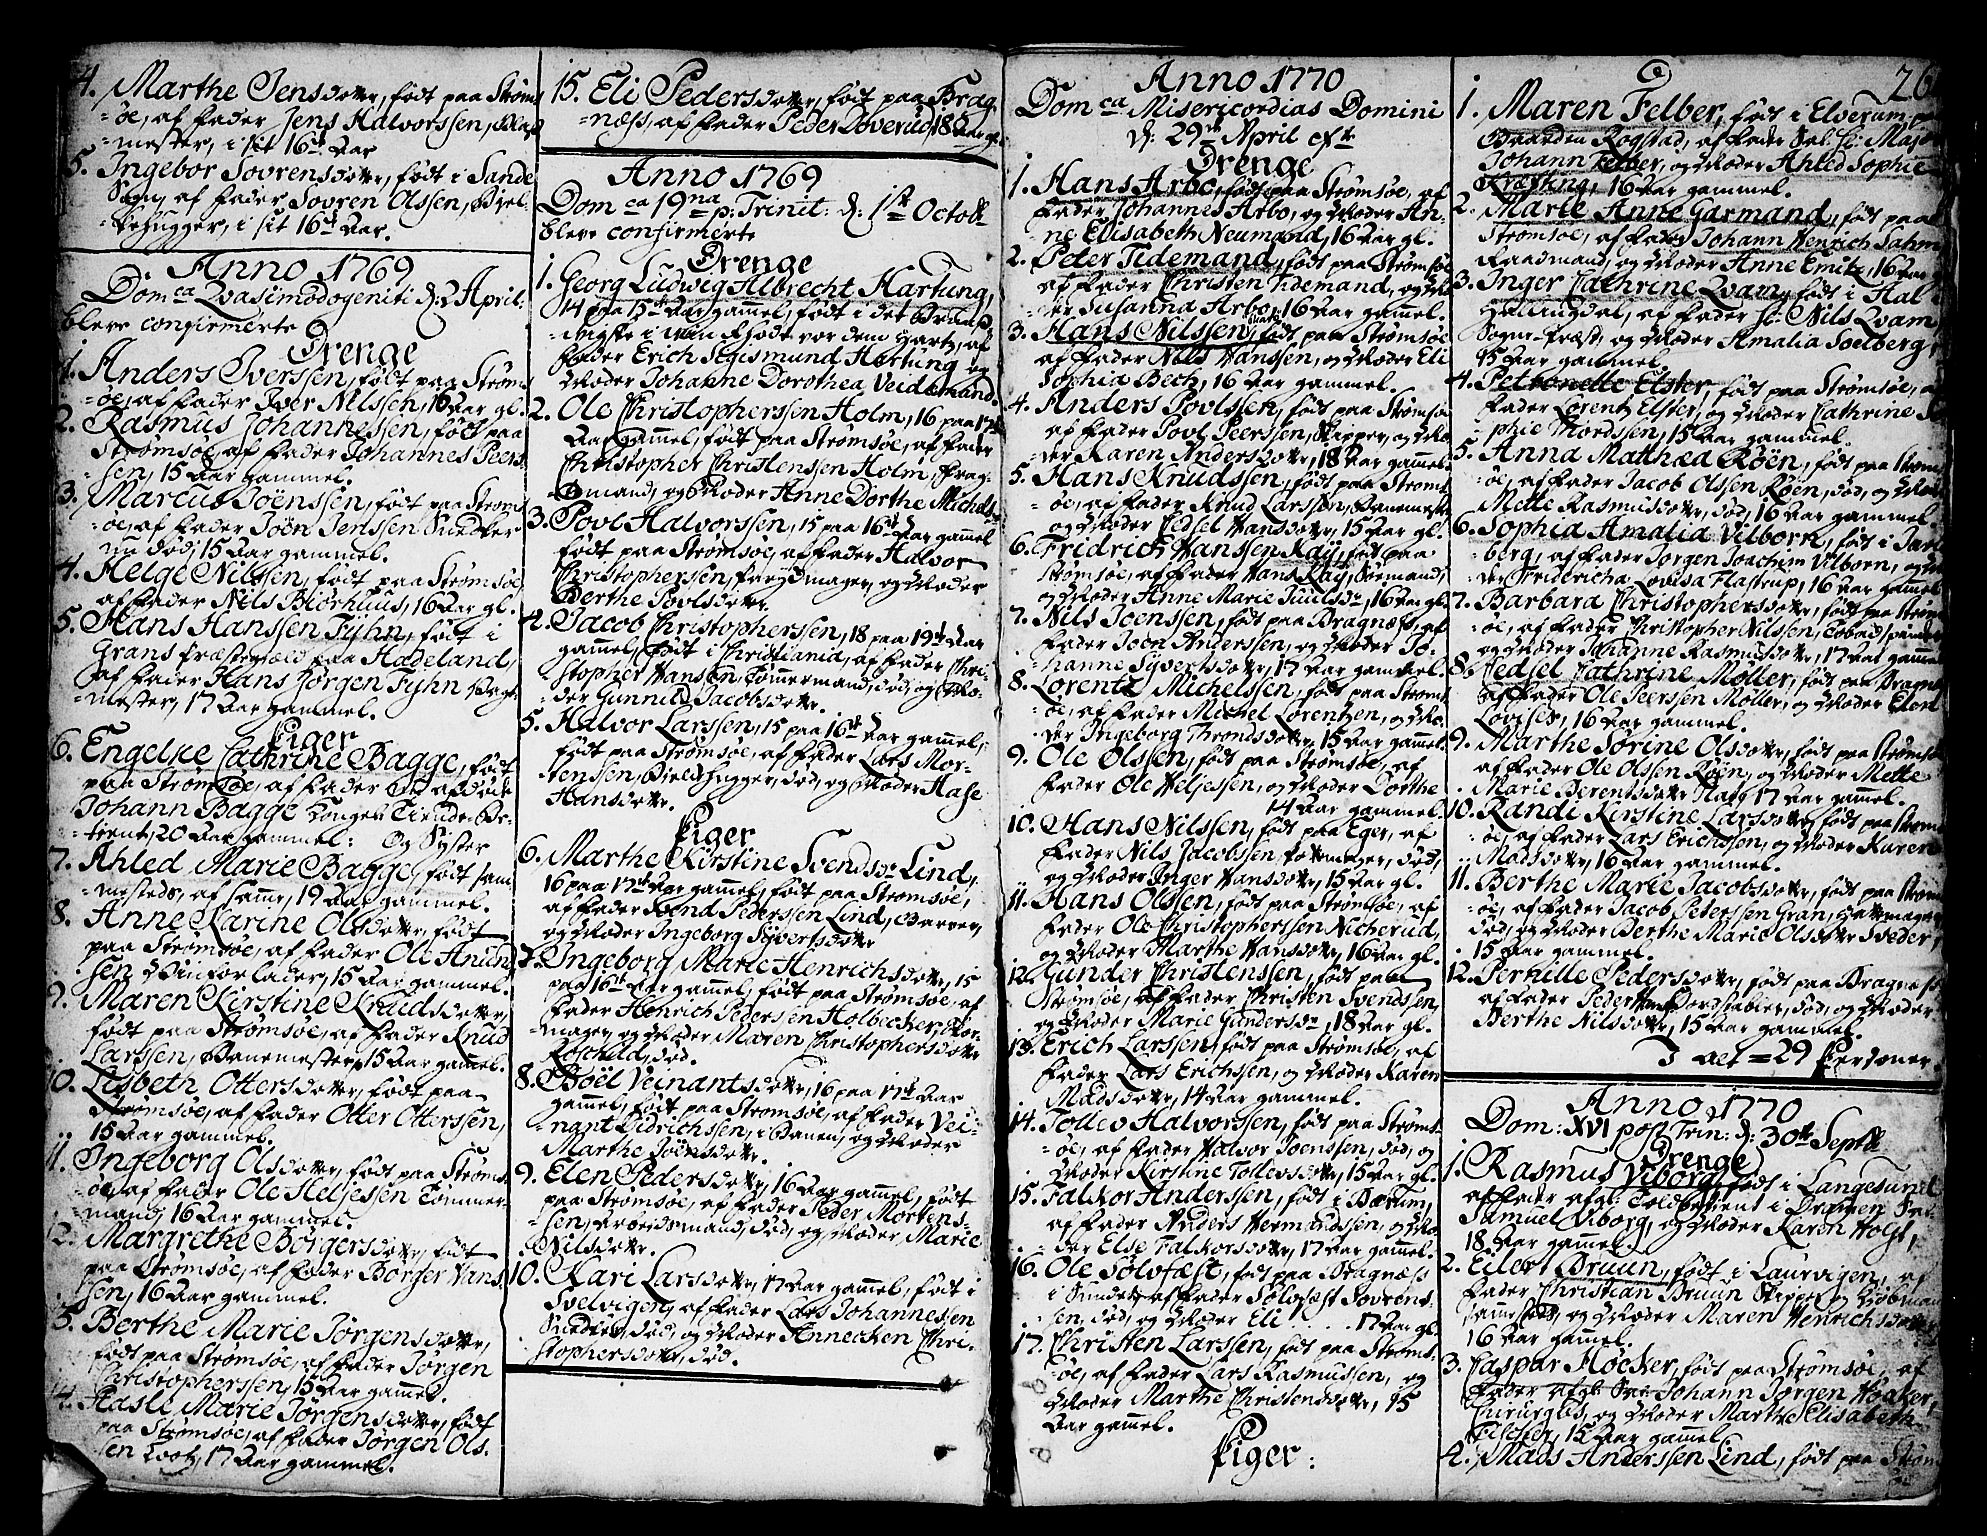 4. Marthe Jensdotter, født paa Strøms-
=øe, af Fader Jens Halvorssen,
=mester, i sit 16de Aar
5. Ingebor Sovrensdotter, født i Sande
Sogn, af Fader Sovren Olssen,
=hugger, i sit 16de Aar.
Anno 1769
Dom ca Qvasimodogeniti d: 2 April:
bleve confirmerte
Drenge
1. Anders Iverssen, født paa Strøms-
=øe, af Fader Iver Nilssen, 16 Aar gl.
2. Rasmus Johannessen, født paa
Strømsøe, af Fader Johannes Peers-
sen, 15 Aar gammel.
3. Marcus Joenssen, født paa Stroms
=øe, af Fader Joen Jenssen Snedker
nu død, 15 Aar gammel.
4. Helge Nilssen, født paa Strømsøe
af Fader Nils Biörhuus, 16 Aar gl.
5. Hans Hanssen Fyhn, født i
Grans Præstegield paa Hadeland,
af Fader Hans Jørgen Fyhn
=mester, 17 Aar gammel.
Piger
6. Engelke Cathrine Bagge, født
paa Strømsøe, af Fader
Johann Bagge Kongel: Tiende Be-
=tient, 20 Aar gammel: Og Syster
7. Ahled Marie Bagge, født sam-
=mesteds, af samme, 19 Aar gammel.
8. Anne Karine Olsdotter, født
paa Strømsøe, af Fader Ole Anund
sen, 15 Aar gammel.
9. Maren Kirstine Knudsdotter,
født paa Strømsøe, af Fader Knud
Larssen, Banemester, 15 Aar gammel.
10. Lisbeth Ottersdotter, født paa
Strømsøe, af Fader Otter Otterssen,
15 Aar gammel.
11. Ingeborg Olsdotter, født paa Strøms-
øe, af Fader Ole Heljessen Tømmer-
mand, 16 Aar gammel.
12. Margrethe Börgersdotter, født
paa Strømsøe, af Fader Börger Hans
sen, 16 Aar gammel.
3. Berthe Marie Jørgensdotter,
født paa Strømsøe, af Fader Jörgen
Christopherssen, 15 Aar gammel.
4. Aasle Marie Jörgensdotter, født
paa Strømsøe, af Fader Jørgen Ols-
sen, 17 Aar gammel.
15. Eli Pedersdotter, født paa Brag-
=næss, af Fader Peder Løverud, 18 Aar gl.
Anno 1769
Dom ca 19na p: Trinit: d: 1ste Octobr
bleve confirmerte
Drenge
1. Georg Ludwig Albrecht Hartung,
14 paa 15de Aar gammel, født i det
vor dem Hartz, af
Fader Erich Segismund Hartung og
Moder Johanne Dorothea Veidemand.
2. Ole Christopherssen Holm, 16 paa 17de
Aar gammel, født paa Strømsøe, af Fader
Christopher Christenssen Holm, Drag-
=mand, og Moder Anne Dorthe Michelsdr
3. Povl Halvorssen, 15 paa 16de Aar gammel
født paa Strømsøe, af Fader Halvor
Christopherssen, og Moder
Berthe Povlsdotter.
4. Jacob Christopherssen, 18 paa 19de Aar
gammel, født i Christiania, af Fader Chri-
stopher Hansen Tømmermand, død, og Mo-
der Gunnild Jacobsdotter.
5. Halvor Larssen, 15 paa 16de Aar gammel,
født paa Strømsøe, af Fader Lars Mor-
tenssen, Bielkehugger, død, og Moder Aase
Hansdotter.
Piger
6. Marthe Kirstine Svendsdr Lind,
16 paa 17de Aar gammel, født paa Strømsøe,
af Fader Svend Pederssen Lind, Garver,
og Moder Ingeborg Syvertsdotter
7. Ingeborg Marie Henrichsdotter, 15
paa 16de Aar gammel, født paa Strømsøe, af
Fader Henrich Pederssen Holbecker, Skor-
=mager, og Moder Maren Christophersdotter
Roschild, død.
8. Boël Veinantsdotter, 16 paa 17de Aar
gammel, født paa Strømsøe, af Fader Vei-
=nant Didrichssen, i Banen, og Moder
Marthe Joënsdotter.
9. Elen Pedersdotter, 16 Aar gammel, født
paa Strømsøe, af Fader Peder Mortens-
=sen, Arbeidsmand, død, og Moder Marie
Nilsdotter.
10. Kari Larsdotter, 17 Aar gammel, født i
Svelvigen, af Fader Lars Johannessen
Snedker, død, og Moder Annechen Chri-
stophersdotter, død.
Anno 1770
Dom ca Misericordias Domini
d: 29de April
Drenge
1. Hans Arbo, født paa Strømsøe, af
Fader Johannes Arbo, og Moder An-
ne Elisabeth Neumand, 16 Aar gl.
2. Peter Tidemand, født paa Strømsøe
af Fader Christen Tidemand, og Mo-
der Susanna Arbo, 16 Aar gammel.
3. Hans Nilssen, født paa Strømsøe
af Fader Nils Hanssen, og Moder Eli
Sophia Bech, 16 Aar gammel.
4. Anders Povlssen, født paa Strømsøe
af Fader Povl Peerssen, Skipper, og Mo-
der Karen Andersdotter, 18 Aar gammel.
5. Hans Knudssen, født paa Stroms-
øe, af Fader Knud Larssen, Banemester
og Moder Sedsel Hansdotter, 15 Aar gl.
6. Fridrich Hanssen Kaÿ, født paa
Strømsøe, af Fader Hans Kaÿ, Søemand,
og Moder Anne Marie Juulsdr, 16 Aar gl.
7. Nils Joenssen, født paa Bragnæss, af
Fader Joen Anderssen, og Moder Jo-
hanne Syvertsdotter, 17 Aar gammel.
8. Lorentz Michelssen, født paa Stroms-
øe, af Fader Michel Lorentzen, og Mo-
der Ingeborg Throndsdotter, 15 Aar gammel.
9. Ole Olssen, født paa Strømsøe, af
Fader Ole Heljessen, og Moder Dorthe
14 Aar gammel.
10. Hans Nilssen, født paa Eger, af
Fader Nils Jacobssen, død,
og Moder Inger Hansdotter, 15 Aar gl.
11. Hans Olssen, født paa Strømsøe, af
Fader Ole Christopherssøn Nicherud,
og Moder Marthe Hansdotter, 16 Aar gl.
12. Gunder Christenssen, født paa
Strømsøe, af Fader Christen Svendssen,
og Moder Marie Gundersdr, 18 Aar gl.
13. Erich Larssen, født paa Strømsøe, af
Fader Lars Erichssen, og Moder Karen
Madsdotter, 14 Aar gammel.
14. Tollev Halvorssen, født paa Strøms-
=øe, af Fader Halvor Joenssen, død, og
Moder Kirstine Tollevsdotter, 15 Aar gl.
15. Falkor Anderssen, født i Bærum,
af Fader Anders Hermandssen, og Mo-
der Else Falkorsdotter, 17 Aar gammel.
16. Ole Sølvfæst, født paa Bragnæss
i Sundet, af Fader Sølvfæst Sovrens-
sen, død, og Moder Eli . . . 17 Aar gl.
17. Christen Larssen, født paa Strøms-
øe, af Fader Lars Rasmussen, og
Moder Marthe Christensdotter, 15
Aar gammel.
Piger:
26
1. Maren Felber, født i Elverum paa
Gaarden Rogstad, af Fader Sal: Hr: Major
Johann Felber, og Moder Ahled Sophie
Kræfting, 16 Aar gammel.
2. Marie Anne Garmand, født paa
Strømsøe, af Fader Johann Henrich
Raadmand, og Moder Anne Emitz, 16 Aar
3. Inger Cathrine Qvam, født i Hal
Hallingdal, af Fader Hr: Nils Qvam
Sogne-Præst, og Moder Amalia Soelberg
15 Aar gammel.
4. Petronelle Elster, født paa Strømsøe, af
Fader Lorentz Elster, og Moder Cathrine So-
phie Mordssen, 15 Aar gammel.
5. Anna Matthæa Röen, født paa Strøms-
=øe, af Fader Jacob Olssen Röen, død, og Moder
Mette Rasmusdotter, død, 16 Aar gammel.
6. Sophia Amalia Vilborn, født i Jarls-
berg, af Fader Jørgen Joachim Vilborn, og Mo-
der Fridericha Lovisa Flastrup, 16 Aar gammel
7. Barbara Christophersdotter, født paa Strøms-
øe, af Fader Christopher Nilssen, Tobackspinder
og Moder Johanne Rasmusdotter, 17 Aar gammel
8. Sedsel Cathrine Møller, født paa Bragnæs
af Fader Ole Peerssen Møller, og Moder Elen
Lovise, 16 Aar gammel.
9. Marthe Sørine Olsdotter, født paa Strømsøe
af Fader Ole Olssen Röen, og Moder Mette
Marie Berentsdotter, 17 Aar gammel.
10. Randi Kirstine Larsdotter, født paa Strøms-
øe, af Fader Lars Erichssen, og Moder Karen
Madsdotter, 16 Aar gammel.
11. Berthe Marie Jacobsdotter, født paa Strøms-
=øe, af Fader Jacob Peterssen Gran, Hattemager
død, og Moder Berthe Marie Olsdotter
15 Aar gammel.
12. Pernille Pedersdotter, født paa Bragnæss
af Fader Peder, død, og Moder
Berthe Nilsdotter, 15 Aar gammel.
I alt = 29 Personer.
Anno 1770
Dom: XVI post Trin: d: 30te Septbr
Drenge
1. Rasmus Viborg, født i Langesund
af Fader afg: Toldbetient i Dramen
Samuel Viborg, og Moder Karen Holst,
18 Aar gammel.
2. Eilert Bruun, født i Laurvigen, af
Fader Christian Bruun Skipper og Kiøbmand
sammesteds, og Moder Maren Henrichsdotter
16 Aar gammel.
3. Caspar Höcker, født paa Strømsøe, af
Fader afg: Johann Jørgen Höcker,
Chirurgus, og Moder Marthe Elisabeth
Fischer, 15 Aar gammel.
4. Mads Anderssen Lind, født paa Strøm